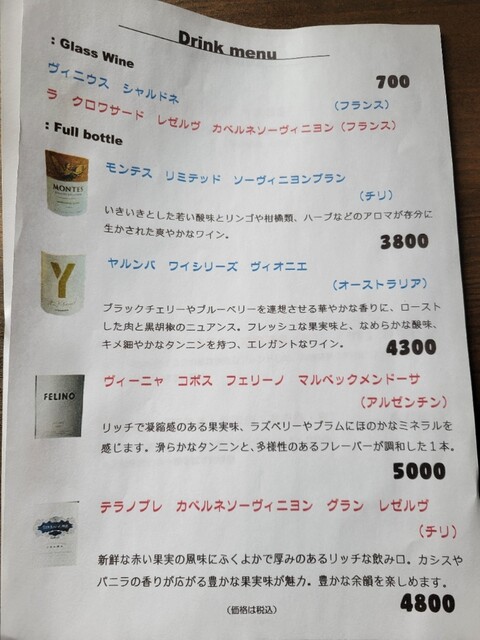 Drink menu
: Glass Wine
700
ヴィニウス シャルドネ
(フランス)
ラ クロワザード レゼルヴ カベルネソーヴィニヨン(フランス)
: Full bottle
MONTES
モンテス リミテッド ソーヴィニヨンブラン
(チリ)
いきいきとした若い酸味とリンゴや柑橘類、ハーブなどのアロマが存分に
生かされた爽やかなワイン。
3800
Y
ヤルンバ ワイシリーズ ヴィオニエ
(オーストラリア)
ブラックチェリーやブルーベリーを連想させる華やかな香りに、ロースト
した肉と黒胡椒のニュアンス。フレッシュな果実味と、なめらかな酸味、
キメ細やかなタンニンを持つ、エレガントなワイン。
4300
FELINO
ヴィーニャ コボス フェリーノ マルベックメンドーサ
(アルゼンチン)
リッチで凝縮感のある果実味、ラズベリーやプラムにほのかなミネラルを
感じます。滑らかなタンニンと、多様性のあるフレーバーが調和した1本。
5000
テラノブレ カベルネソーヴィニヨン グラン レゼルヴ
(チリ)
新鮮な赤い果実の風味にふくよかで厚みのあるリッチな飲み口。カシスや
バニラの香りが広がる豊かな果実味が魅力。豊かな余韻を楽しめます。
4800
(価格は税込)